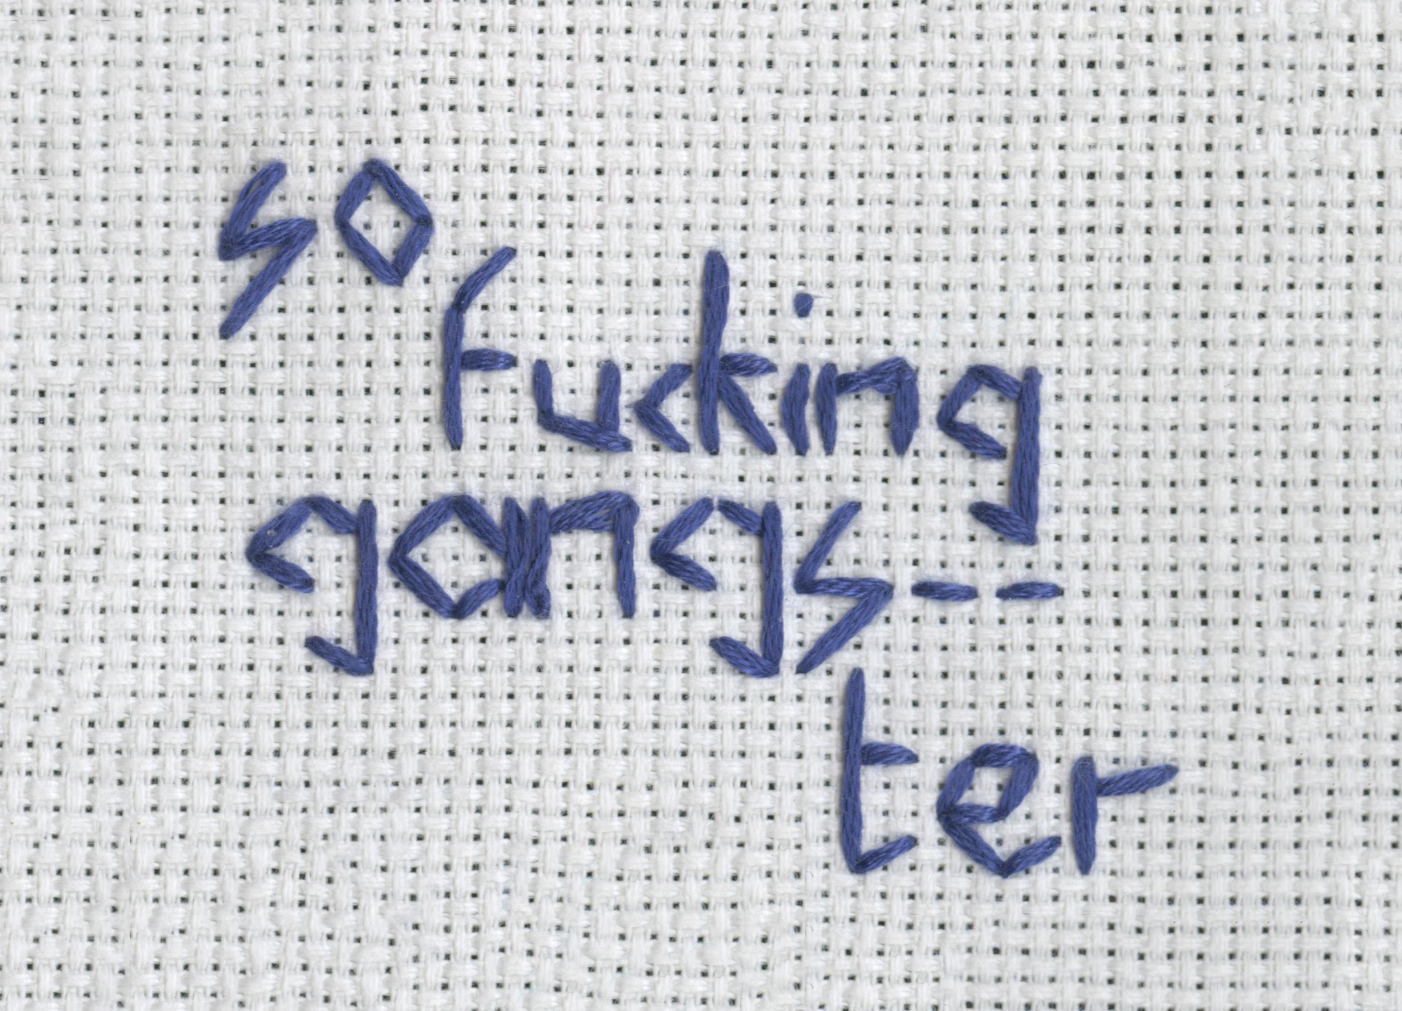 so
fucking
gangs--
ter